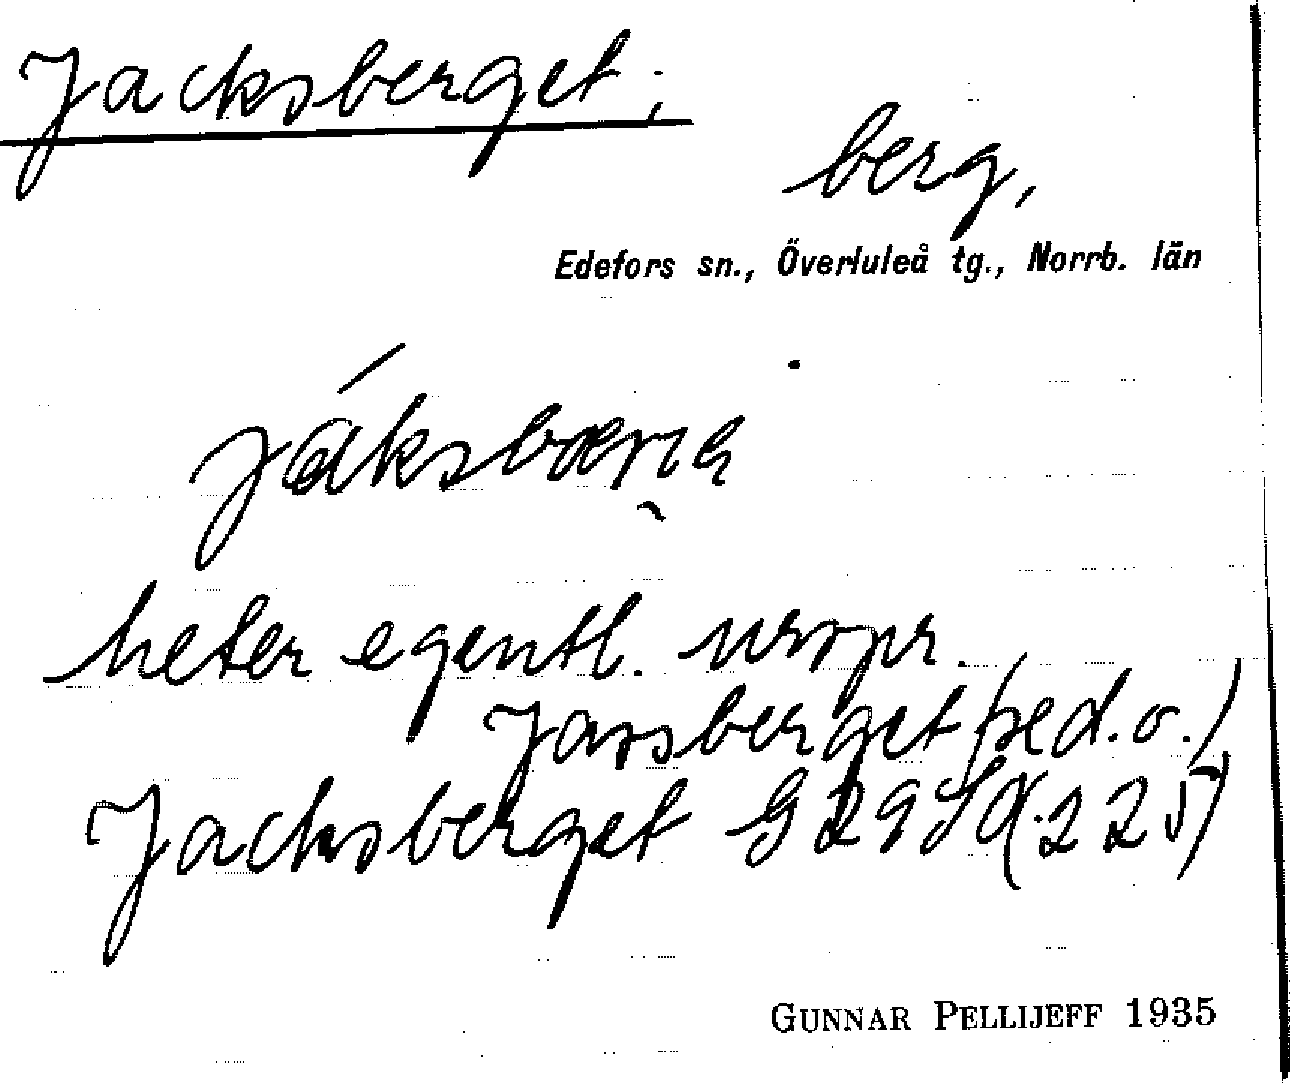 Jacksberget;
berg,
Edefors sn., Överluleå tg., Norrb. län
heter egentl. urspr.
Jarsberget (sed. o.)
Jacksberget G 29 S d. 225)
GUNNAR PELLIJEFF 1935